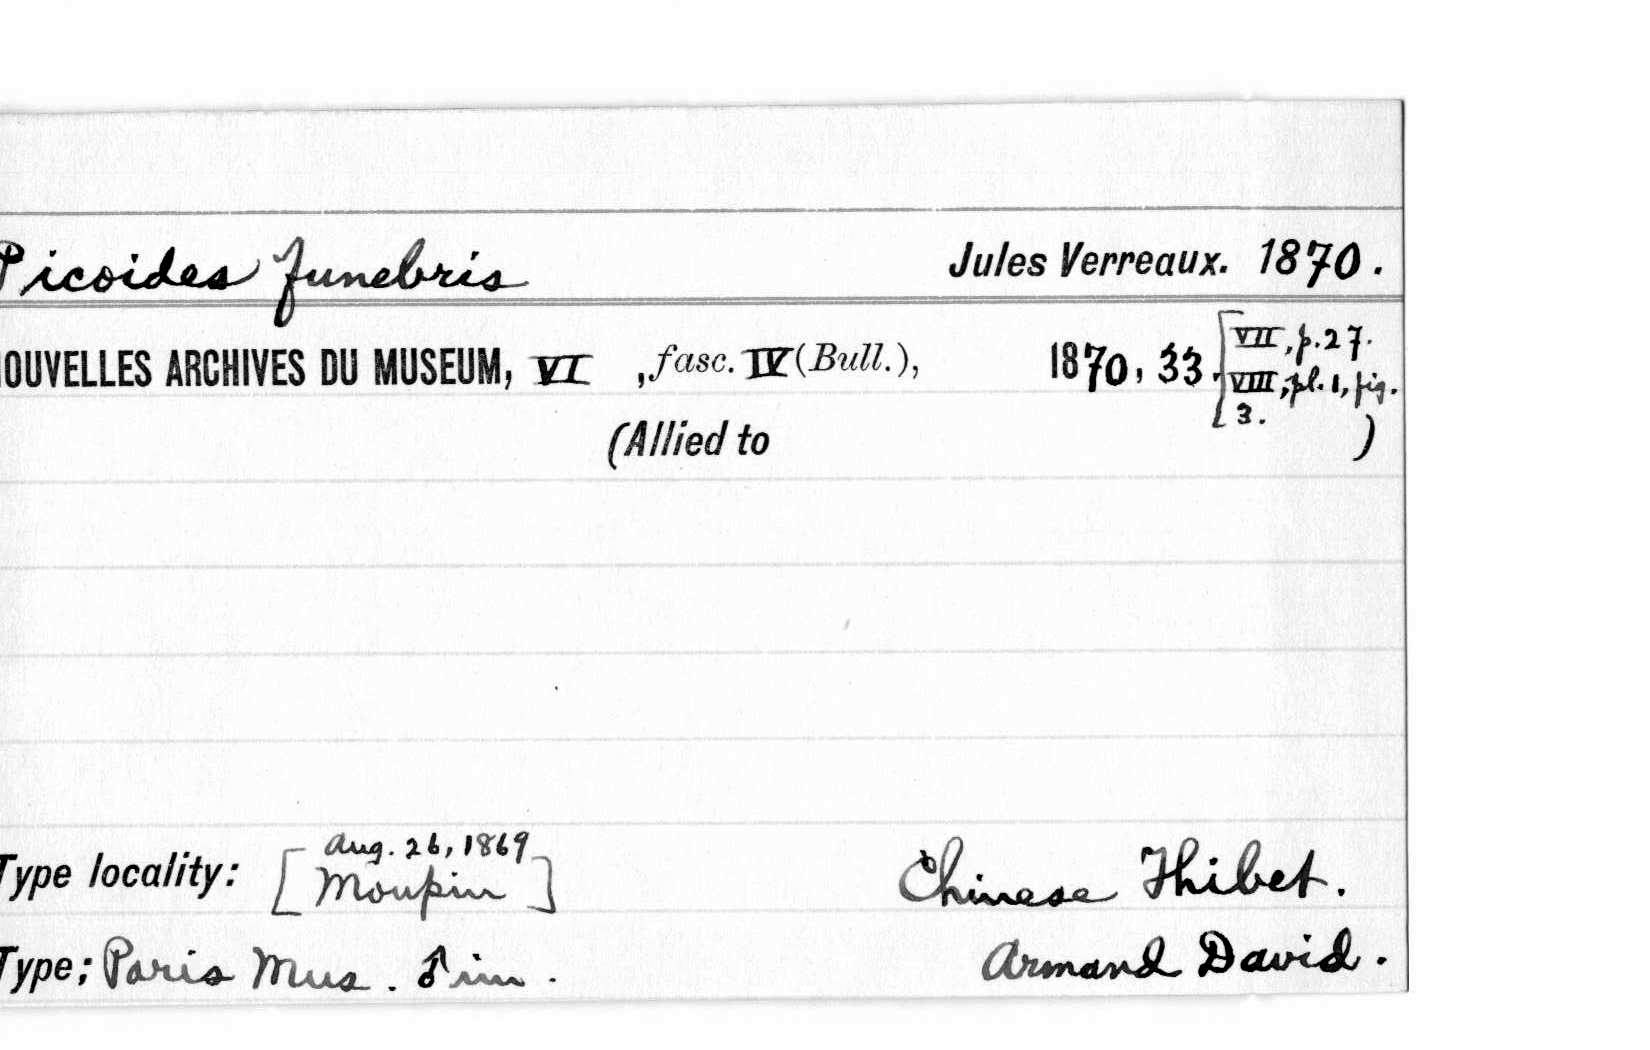 Picoides funebris Jules Verreaux. 1870.
OUVELLES ARCHIVES DU MUSEUM, VI , fasc. IV (Bull.), 1870, 33. [VII, p. 27.
VIII, pl. 1, fig.
3.]
(Allied to )
Type locality: [Aug. 26, 1869
Moupin] Chinese Thibet.
Type; Paris Mus. ♂ im. Armand David.